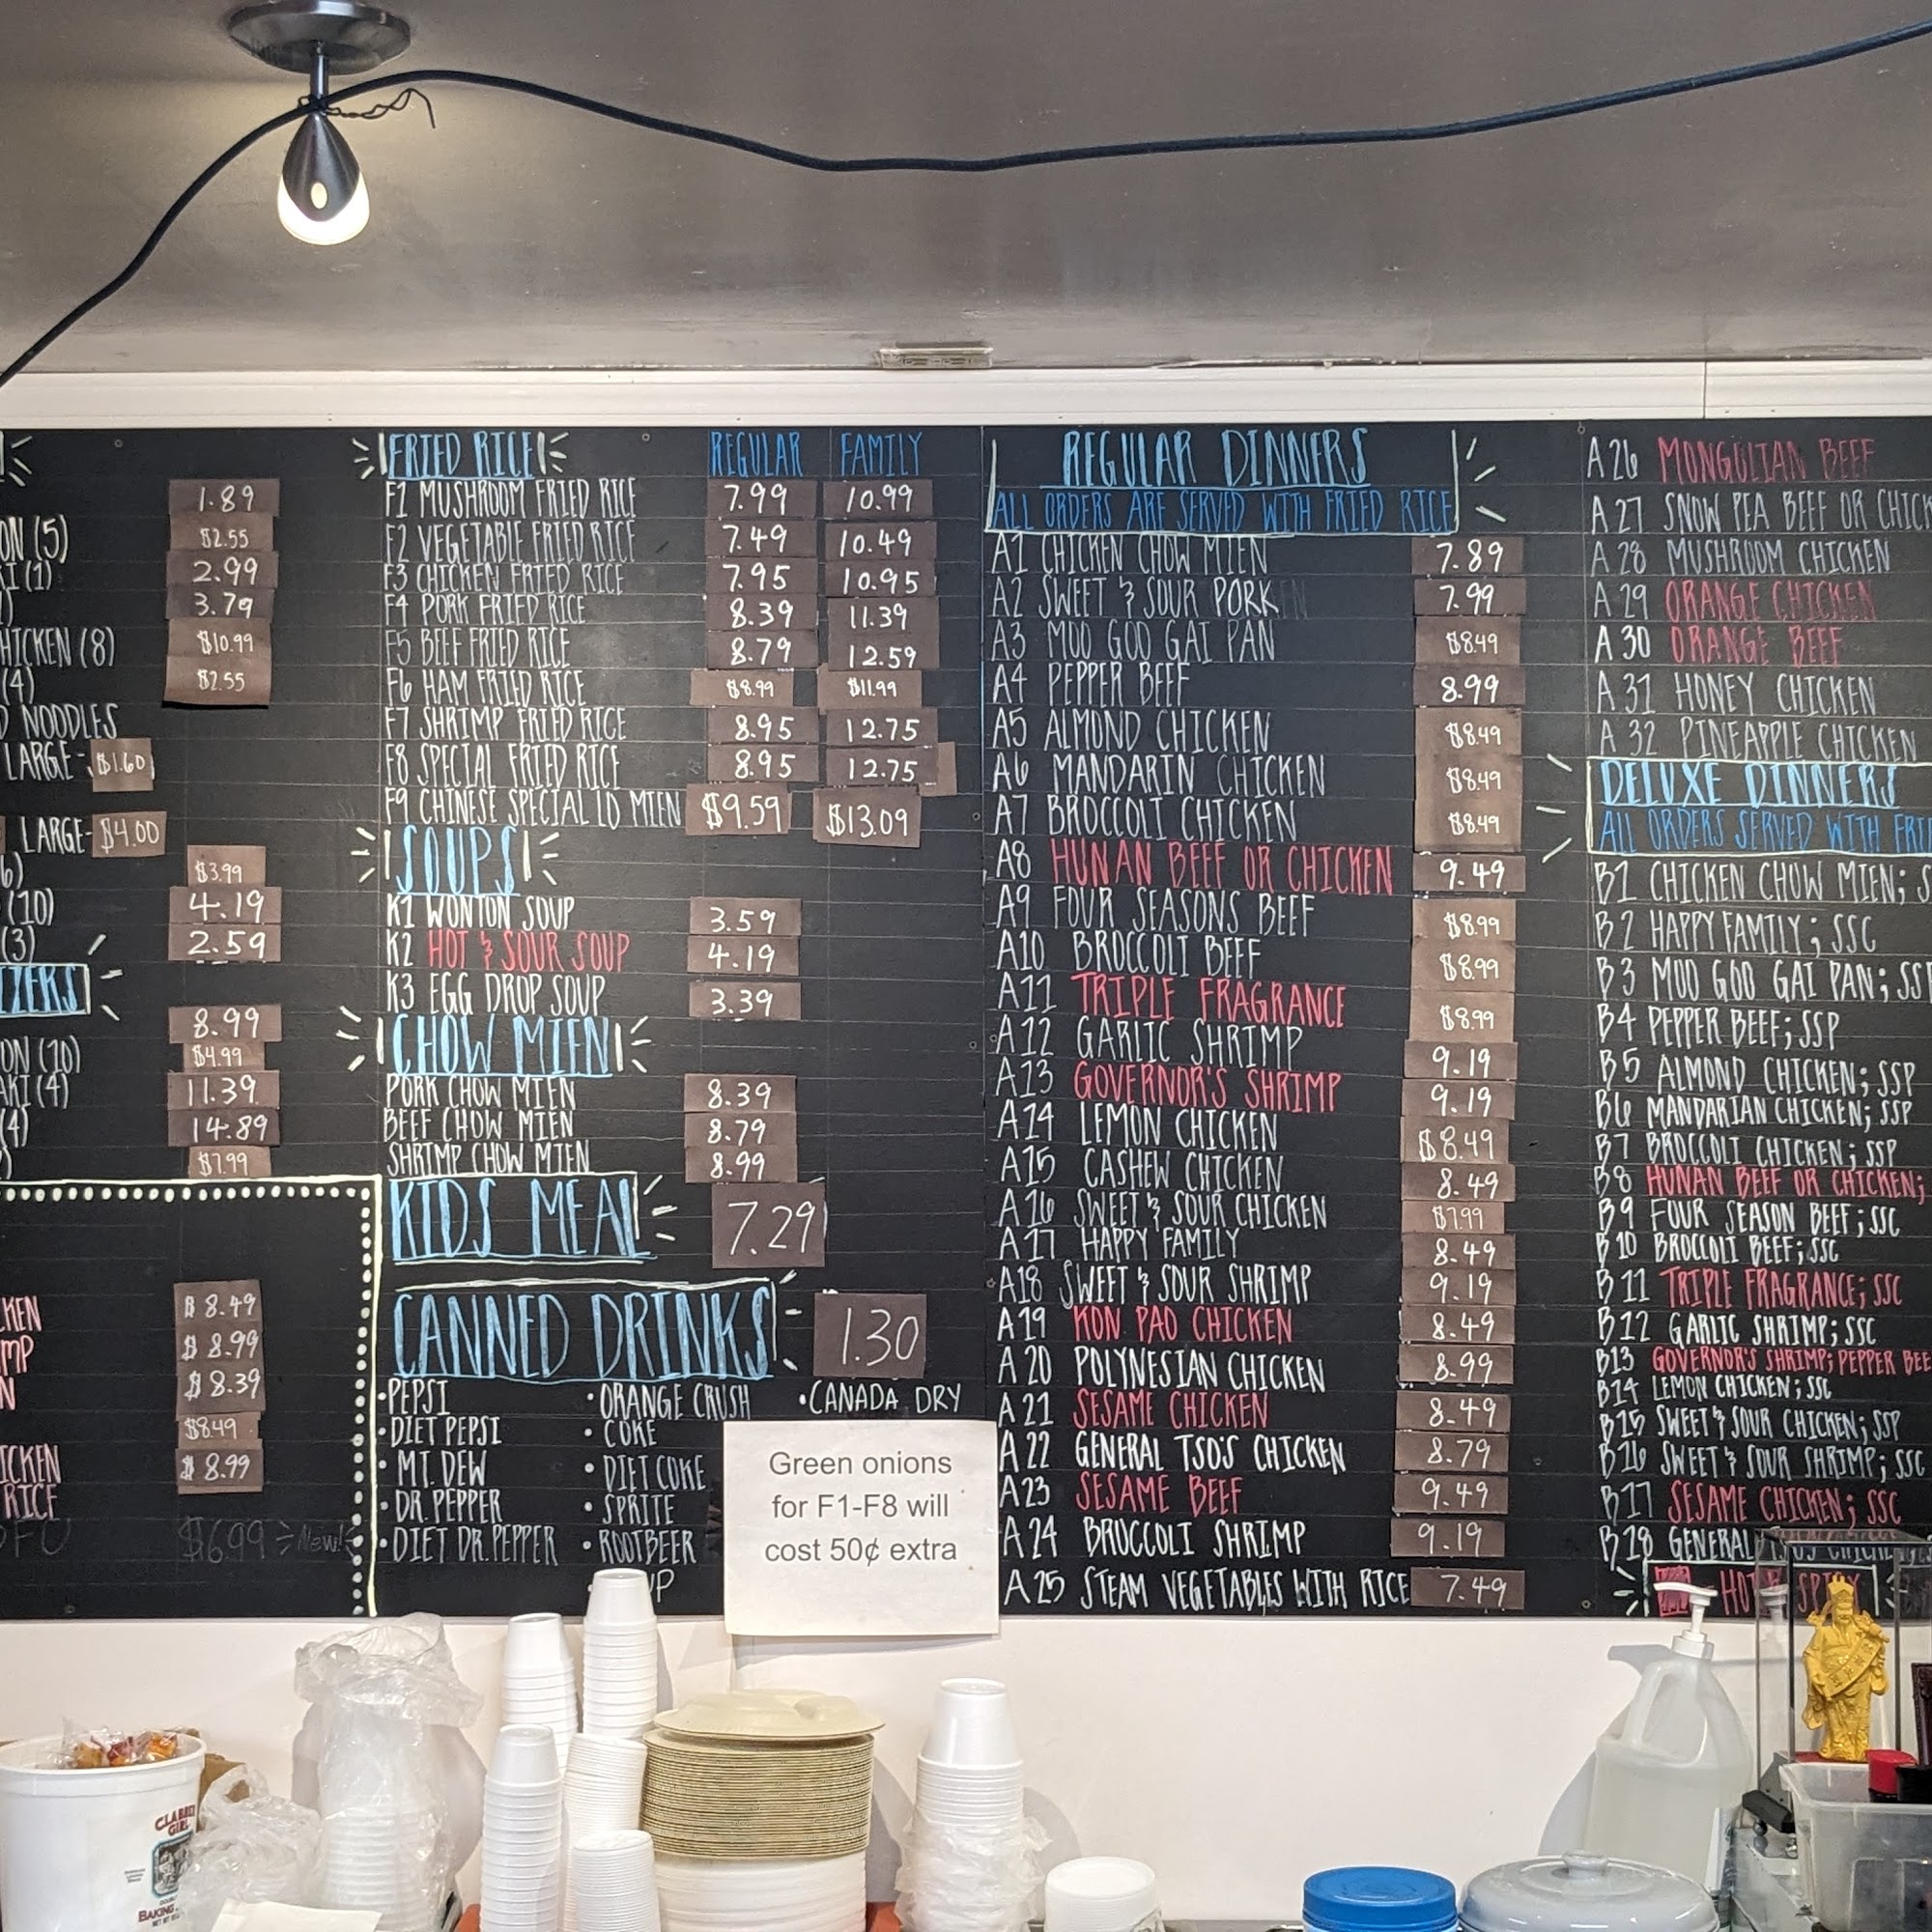 1.89
ON (5) $2.55
KI (1) 2.99
3.79
HICKEN (8) $10.99
(4) $2.55
D NOODLES
LARGE - $1.60
LARGE - $4.00
6) $3.99
(10) 4.19
(3) 2.59
IZERS
8.99
ON (10) $4.99
AKI (4) 11.39
(4) 14.89
) $7.99
CKEN $8.49
MP $8.99
N $8.39
$8.49
ICKEN $8.99
RICE
OFU $6.99 New!
FRIED RICE REGULAR FAMILY
F1 MUSHROOM FRIED RICE 7.99 10.99
F2 VEGETABLE FRIED RICE 7.49 10.49
F3 CHICKEN FRIED RICE 7.95 10.95
F4 PORK FRIED RICE 8.39 11.39
F5 BEEF FRIED RICE 8.79 12.59
F6 HAM FRIED RICE $8.99 $11.99
F7 SHRIMP FRIED RICE 8.95 12.75
F8 SPECIAL FRIED RICE 8.95 12.75
F9 CHINESE SPECIAL LO MIEN $9.59 $13.09
SOUPS
K1 WONTON SOUP 3.59
K2 HOT & SOUR SOUP 4.19
K3 EGG DROP SOUP 3.39
CHOW MIEN
PORK CHOW MIEN 8.39
BEEF CHOW MIEN 8.79
SHRIMP CHOW MIEN 8.99
KIDS MEAL 7.29
CANNED DRINKS 1.30
• PEPSI • ORANGE CRUSH • CANADA DRY
• DIET PEPSI • COKE
• MT. DEW • DIET COKE
• DR. PEPPER • SPRITE
• DIET DR. PEPPER • ROOTBEER
UP
Green onions
for F1-F8 will
cost 50¢ extra
REGULAR DINNERS
ALL ORDERS ARE SERVED WITH FRIED RICE
A1 CHICKEN CHOW MIEN 7.89
A2 SWEET & SOUR PORK 7.99
A3 MOO GOO GAI PAN $8.49
A4 PEPPER BEEF 8.99
A5 ALMOND CHICKEN $8.49
A6 MANDARIN CHICKEN $8.49
A7 BROCCOLI CHICKEN $8.49
A8 HUNAN BEEF OR CHICKEN 9.49
A9 FOUR SEASONS BEEF $8.99
A10 BROCCOLI BEEF $8.99
A11 TRIPLE FRAGRANCE $8.99
A12 GARLIC SHRIMP 9.19
A13 GOVERNOR'S SHRIMP 9.19
A14 LEMON CHICKEN $8.49
A15 CASHEW CHICKEN 8.49
A16 SWEET & SOUR CHICKEN $7.99
A17 HAPPY FAMILY 8.49
A18 SWEET & SOUR SHRIMP 9.19
A19 KON PAO CHICKEN 8.49
A20 POLYNESIAN CHICKEN 8.99
A21 SESAME CHICKEN 8.49
A22 GENERAL TSO'S CHICKEN 8.79
A23 SESAME BEEF 9.49
A24 BROCCOLI SHRIMP 9.19
A25 STEAM VEGETABLES WITH RICE 7.49
A26 MONGOLIAN BEEF
A27 SNOW PEA BEEF OR CHICK
A28 MUSHROOM CHICKEN
A29 ORANGE CHICKEN
A30 ORANGE BEEF
A31 HONEY CHICKEN
A32 PINEAPPLE CHICKEN
DELUXE DINNERS
ALL ORDERS SERVED WITH FRIE
B1 CHICKEN CHOW MIEN; S
B2 HAPPY FAMILY; SSC
B3 MOO GOO GAI PAN; SSP
B4 PEPPER BEEF; SSP
B5 ALMOND CHICKEN; SSP
B6 MANDARIAN CHICKEN; SSP
B7 BROCCOLI CHICKEN; SSP
B8 HUNAN BEEF OR CHICKEN;
B9 FOUR SEASON BEEF; SSC
B10 BROCCOLI BEEF; SSC
B11 TRIPLE FRAGRANCE; SSC
B12 GARLIC SHRIMP; SSC
B13 GOVERNOR'S SHRIMP; PEPPER BEE
B14 LEMON CHICKEN; SSC
B15 SWEET & SOUR CHICKEN; SSP
B16 SWEET & SOUR SHRIMP; SSC
B17 SESAME CHICKEN; SSC
B18 GENERAL
HOT & SPICY
CLABBER
GIRL
BAKING